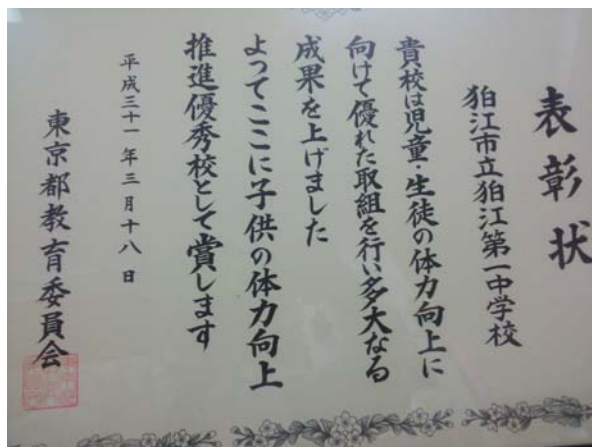 表彰状
狛江市立狛江第一中学校
貴校は児童・生徒の体力向上に
向けて優れた取組を行い多大なる
成果を上げました
よってここに子供の体力向上
推進優秀校として賞します
平成三十一年三月十八日
東京都教育委員会